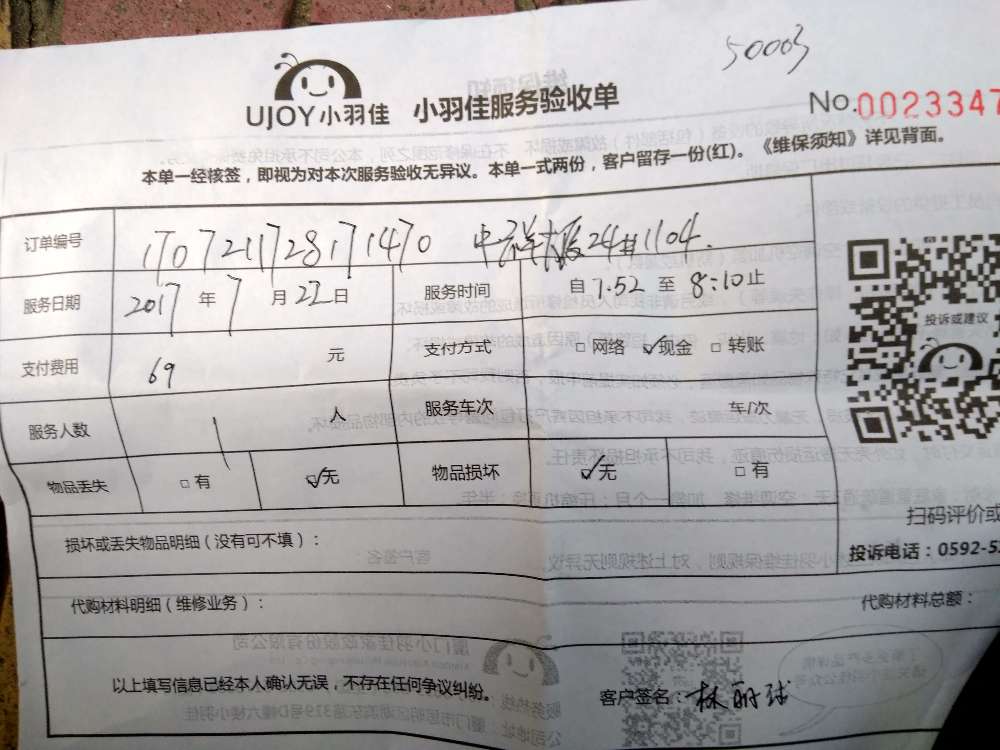 50003
UJOY小羽佳 小羽佳服务验收单
No.0023347
本单一经核签，即视为对本次服务验收无异议。本单一式两份，客户留存一份(红)。《维保须知》详见背面。
订单编号 1707211728171470 24#1104.
服务日期 2017 年 7 月 22 日 服务时间 自 7.52 至 8:10 止
支付费用 69 元 支付方式 □ 网络 ☑现金 □ 转账
服务人数 1 人 服务车次 车/次
物品丢失 □ 有 ☑无 物品损坏 ☑无 □ 有
投诉或建议
损坏或丢失物品明细（没有可不填）：
扫码评价或
投诉电话：0592-5
代购材料明细（维修业务）： 代购材料总额：
以上填写信息已经本人确认无误，不存在任何争议纠纷。 客户签名：林丽球